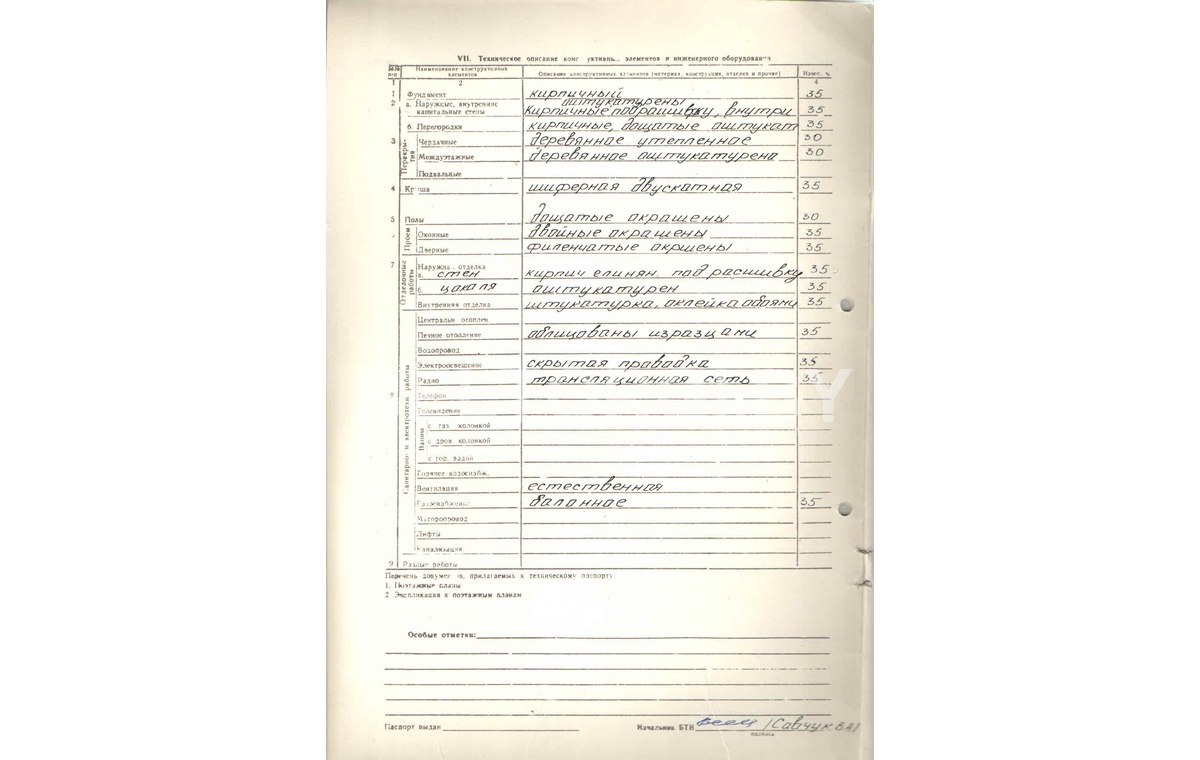 VII. Техническое описание конс уктивнь. элементов и инженерного оборудования
№№ п-п Наименование конструктивных элементов Описание конструктивных элементов (материал, конструкция, отделка и прочие) Износ, %
1 2 4
1 Фундамент кирпичный 35
2 а. Наружные, внутренние капитальные стены кирпичные подрашивку, внутри штукатурены 35
б. Перегородки кирпичные, дощатые оштукат 35
3 Перекрытия Чердачные деревяное утепленное 30
Междуэтажные деревянное оштукатурена 30
Подвальные
4 Крыша шиферная двускатная 35
5 Полы дощатые окрашены 30
Проем Оконные двойные окрашены 35
Дверные филенчатые окршены 35
7 Отделочные работы Наружна. отделка
а. стен кирпич силикян. под расшивку 35
б. цоколя оштукатурен 35
Внутренняя отделка штукатурка, оклейка обоями 35
Санитарно- и электротехн работы Центральн отоплен
Печное отопление облицованы изразцами 35
Водопровод
Электроосвещение скрытая проводка 35
Радио трансляционная сеть 35
8 Телефон
Телевидение
Ванны с газ. колонкой
с дров колонкой
с гор. водой
Горячее водоснабж.
Вентиляция естественная
Газоснабжение балонное 35
Мусоропровод
Лифты
Канализация
9 Разные работы
Перечень докумен ов, прилагаемых к техническому паспорту
1. Поэтажные планы
2 Экспликация к поэтажным планам
Особые отметки:
Паспорт выдан Начальник БТИ /Савчук В.А/
подпись